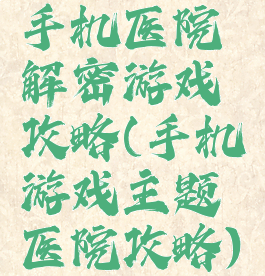 手机医院
解密游戏
攻略(手机
游戏主题
医院攻略)